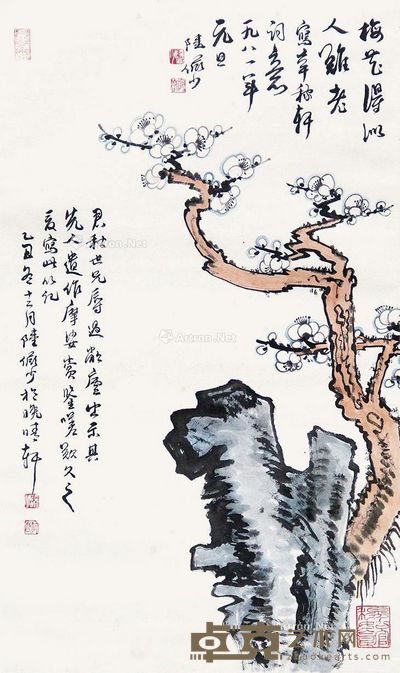 梅花得似
人难老
写辛稼轩
词意
一九八一年
元旦
陆俨少
君秋世兄辱过敝庐出示其
先人遗作摩娑赏鉴嗟叹久之
爰写此以记
乙丑冬十二月陆俨少于晚晴轩
Artron.Net
卓克艺术网